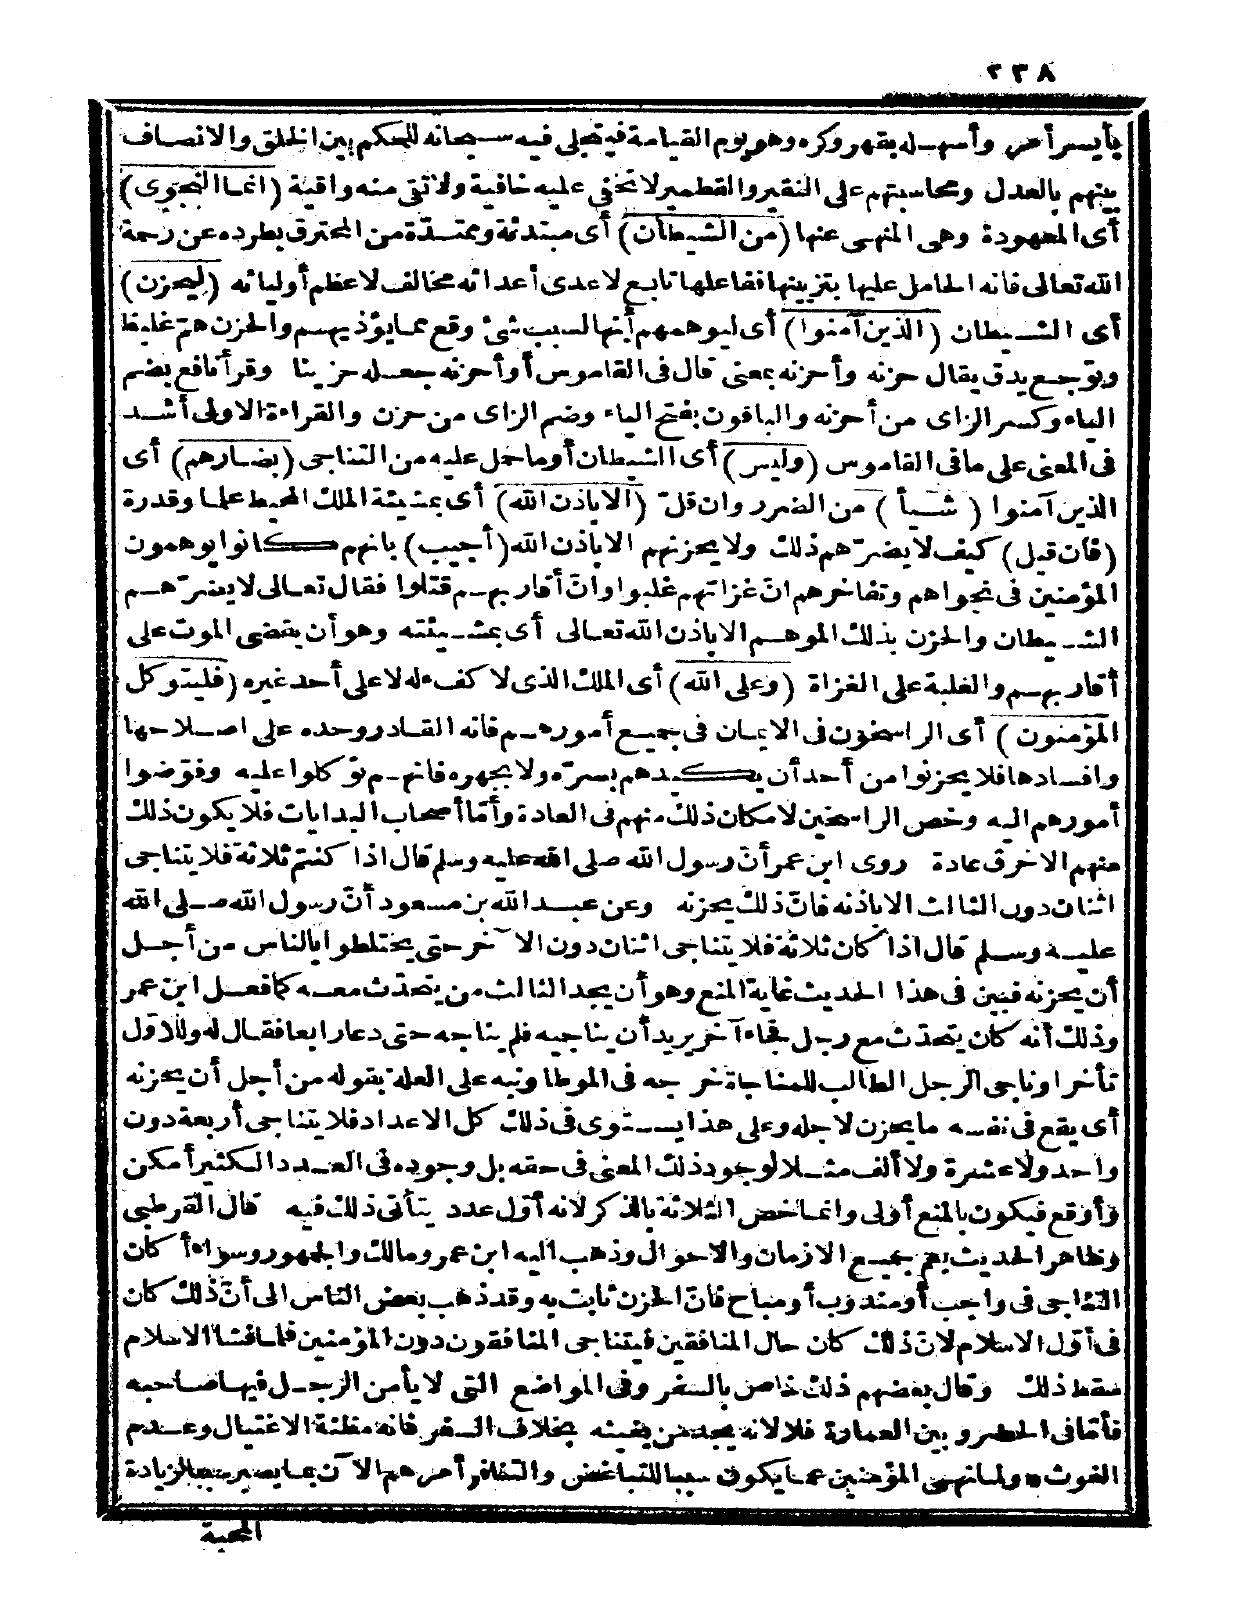 ٢٣٨
بأيسر أمر وأسهله بقهر وكره وهو يوم القيامة فيتجلى فيه سبحانه للحكم بين الخلق والانصاف
بينهم بالعدل ومحاسبتهم على النقير والقطمير لا تخفى عليه خافية ولا تقى منه واقية (انما النجوى)
أى المعهودة وهى المنهى عنها (من الشيطان) أى مبتدئة وممتدّة من المحترق بطرده عن رحمة
الله تعالى فانه الحامل عليها بتزيينها ففاعلها تابع لاعدى أعدائه مخالف لاعظم أوليائه (ليحزن)
أى الشيطان (الذين آمنوا) أى ليوهمهم أنها لسبب شئ وقع مما يؤذيهم والحزن همّ غليظ
وتوجع يدق يقال حزنه وأحزنه بمعنى قال فى القاموس أو أحزنه جعله حزينا وقرأ نافع بضم
الياء وكسر الزاى من أحزنه والباقون بفتح الياء وضم الزاى من حزن والقراءة الاولى أشد
فى المعنى على ما فى القاموس (وليس) أى الشيطان أو ما حمل عليه من التناجى (بضارهم) أى
الذين آمنوا (شيأ) من الضرر وان قلّ (الا باذن الله) أى بمشيئة الملك المحيط علما وقدرة
(فان قيل) كيف لا يضرّهم ذلك ولا يحزنهم الا باذن الله (أجيب) بانهم كانوا يوهمون
المؤمنين فى نجواهم وتفاخرهم انّ غزاتهم غلبوا وانّ أقاربهم قتلوا فقال تعالى لا يضرّهم
الشيطان والحزن بذلك الموهم الا باذن الله تعالى أى بمشيئته وهو أن يقضى الموت على
أقاربهم والغلبة على الغزاة (وعلى الله) أى الملك الذى لا كفء له لا على أحد غيره (فليتوكل
المؤمنون) أى الراسخون فى الايمان فى جميع أمورهم فانه القادر وحده على اصلاحها
وافسادها فلا يحزنوا من أحد أن يكيدهم بسرّه ولا بجهره فانهم توكلوا عليه وفوّضوا
أمورهم اليه وخص الراسخين لامكان ذلك منهم فى العادة وأمّا أصحاب البدايات فلا يكون ذلك
منهم الا خرق عادة روى ابن عمر أنّ رسول الله صلى الله عليه وسلم قال اذا كنتم ثلاثة فلا يتناجى
اثنان دون الثالث الا باذنه فانّ ذلك يحزنه وعن عبد الله بن مسعود أنّ رسول الله صلى الله
عليه وسلم قال اذا كان ثلاثة فلا يتناجى اثنان دون الآخر حتى يختلطوا بالناس من أجل
أن يحزنه فبين فى هذا الحديث غاية المنع وهو أن يجد الثالث من يتحدّث معه كما فعل ابن عمر
وذلك أنه كان يتحدّث مع رجل فجاء آخر يريد أن يناجيه فلم يناجه حتى دعا رابعا فقال له وللاوّل
تأخرا وناجى الرجل الطالب للمناجاة خرجه فى الموطا ونبه على العلة بقوله من أجل أن يحزنه
أى يقع فى نفسه ما يحزن لاجله وعلى هذا يستوى فى ذلك كل الاعداد فلا يتناجى أربعة دون
واحد ولا عشرة ولا ألف مثلا لوجود ذلك المعنى فى حقه بل وجوده فى العدد الكثير أمكن
وأوقع فيكون بالمنع أولى وانما خص الثلاثة بالذكر لانه أوّل عدد يتأتى ذلك فيه قال القرطبى
وظاهر الحديث يعم جميع الازمان والاحوال وذهب اليه ابن عمر ومالك والجمهور وسواء أكان
التناجى فى واجب أو مندوب أو مباح فانّ الحزن ثابت به وقد ذهب بعض الناس الى أنّ ذلك كان
فى أوّل الاسلام لانّ ذلك كان حال المنافقين فيتناجى المنافقون دون المؤمنين فلما فشا الاسلام
سقط ذلك وقال بعضهم ذلك خاص بالسفر وفى المواضع التى لا يأمن الرجل فيها صاحبه
فأمّا فى الحضر وبين العمارة فلا لانه يجد من يغيثه بخلاف السفر فانه مظنة الاغتيال وعدم
الغوث * ولما نهى المؤمنين عما يكون سببا للتباغض والتنافر أمرهم الآن بما يصير سببا لزيادة
المحبة